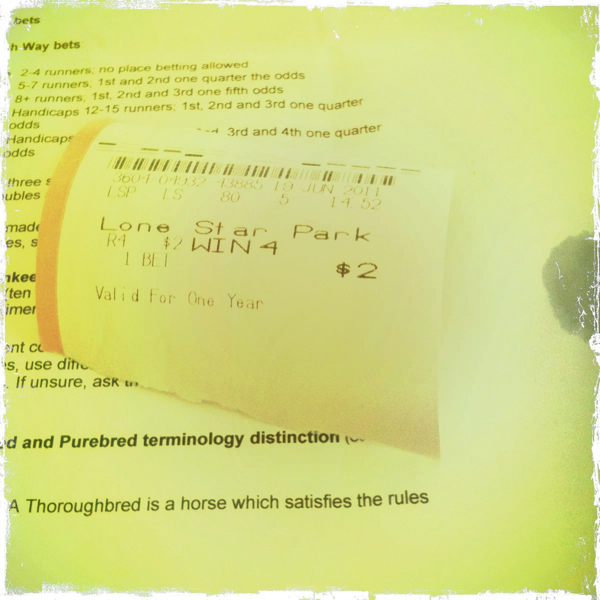 bets
h Way bets
2-4 runners; no place betting allowed
5-7 runners, 1st and 2nd one quarter the odds
8+ runners, 1st, 2nd and 3rd one fifth odds
Handicaps 12-15 runners; 1st, 2nd and 3rd one quarter
odds
Handicaps 3rd and 4th one quarter
odds
three s
oubles
made
es, s
nkee
(ten
imer
ent co
s, use diffe
. If unsure, ask th
ed and Purebred terminology distinction
A Thoroughbred is a horse which satisfies the rules
3604 04932 43885 19 JUN 2011
LSP LS 80 5 14 52
Lone Star Park
R4 $2 WIN 4
1 BET $2
Valid For One Year